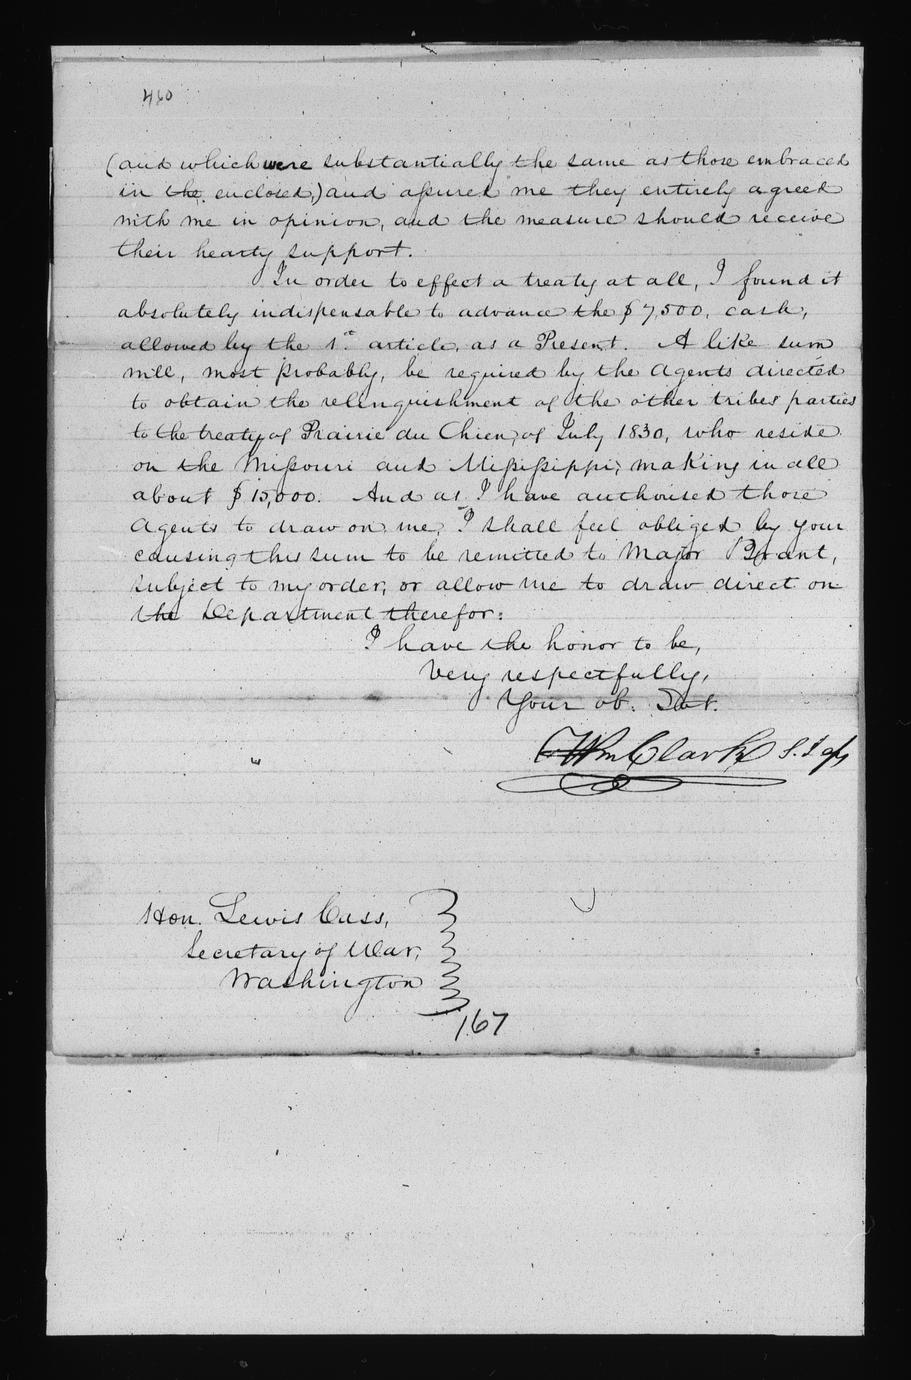 460
(and which were substantially the same as those embraced
in the enclosed,) and assured me they entirely agreed
with me in opinion, and the measure should receive
their hearty support.
In order to effect a treaty at all, I found it
absolutely indispensable to advance the $7,500, cash,
allowed by the 1st article, as a Present. A like sum
will, most probably, be required by the Agents directed
to obtain the relinquishment of the other tribes parties
to the treaty of Prairie du Chien, of July 1830, who reside
on the Missouri and Mississippi; making in all
about $15,000. And as I have authorised those
Agents to draw on me, I shall feel obliged by your
causing this sum to be remitted to Major Brant,
subject to my order, or allow me to draw direct on
the Department therefor:
I have the honor to be,
Very respectfully,
Your ob. Svt.
Wm Clark S. I. aff
Hon. Lewis Cass,
Secretary of War,
Washington
167